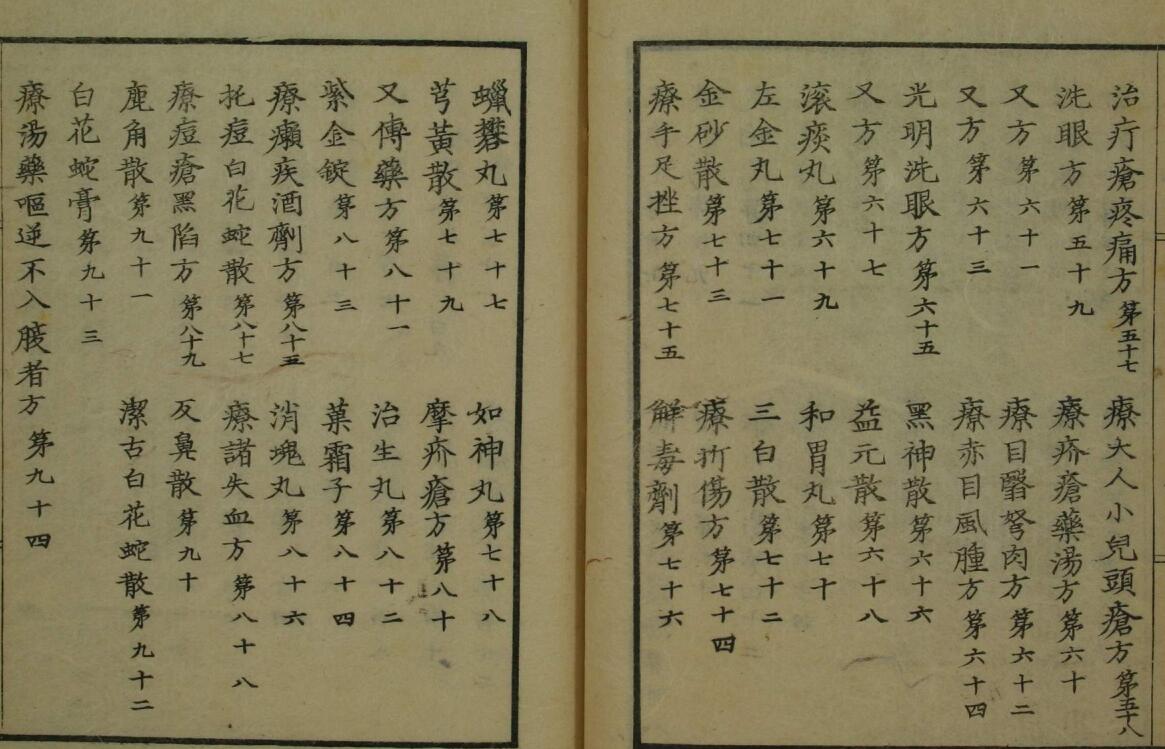 治疔瘡疼痛方第五十七　療大人小兒頭瘡方第五十八
洗眼方第五十九　療疥瘡藥湯方第六十
又方第六十一　療目翳弩肉方第六十二
又方第六十三　療赤目風腫方第六十四
光明洗眼方第六十五　黑神散第六十六
又方第六十七　益元散第六十八
滚痰丸第六十九　和胃丸第七十
左金丸第七十一　三白散第七十二
金砂散第七十三　療折傷方第七十四
療手足挫方第七十五　解毒劑第七十六
蠟礬丸第七十七　如神丸第七十八
芎黄散第七十九　摩疥瘡方第八十
又傅藥方第八十一　治生丸第八十二
紫金錠第八十三　菓霜子第八十四
療癩疾酒劑方第八十五　消塊丸第八十六
托痘白花蛇散第八十七　療諸失血方第八十八
療痘瘡黑陷方第八十九　反鼻散第九十
鹿角散第九十一　潔古白花蛇散第九十二
白花蛇膏第九十三
療湯藥嘔逆不入腹者方第九十四